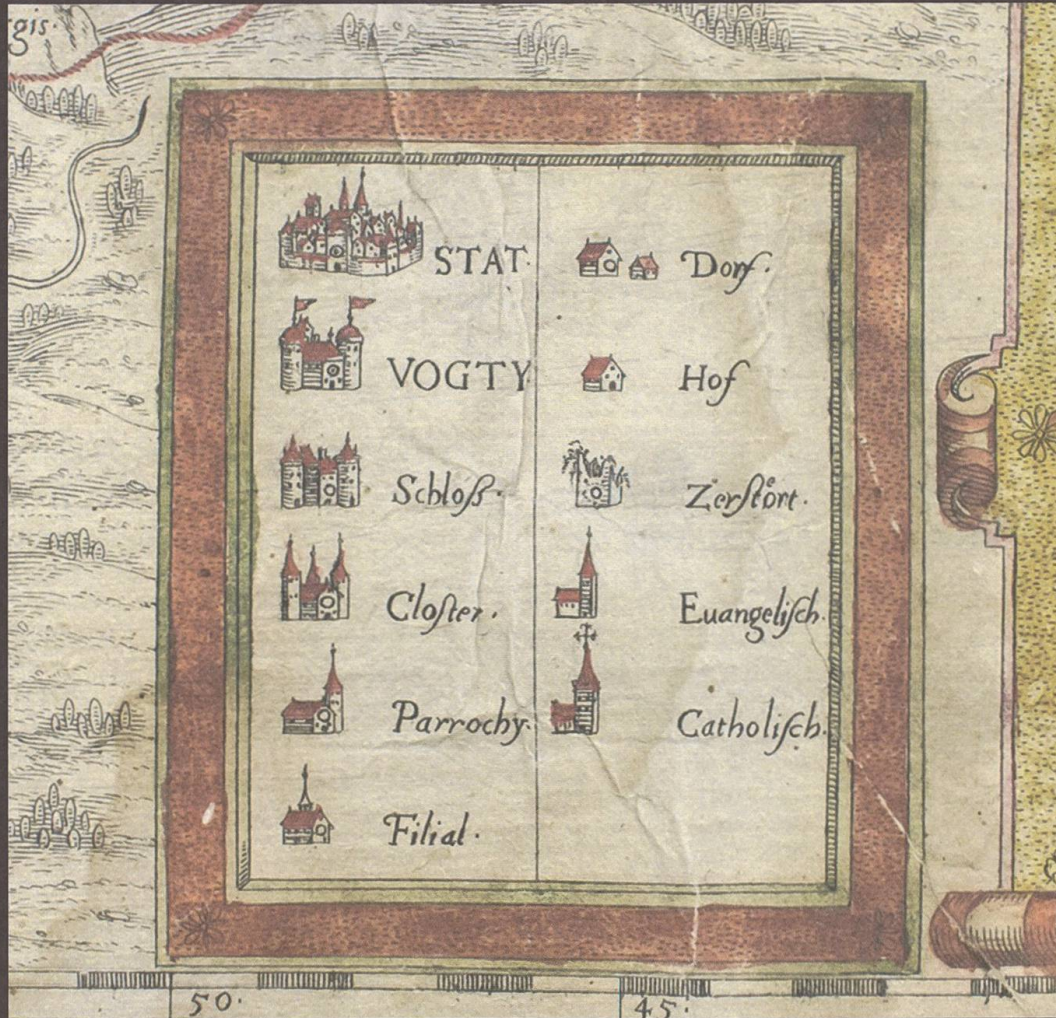 gis.
STAT.
VOGTY
Schloß.
Closter.
Parrochy.
Filial.
Dorf.
Hof
Zerstört.
Euangelisch.
Catholisch.
50.
45.